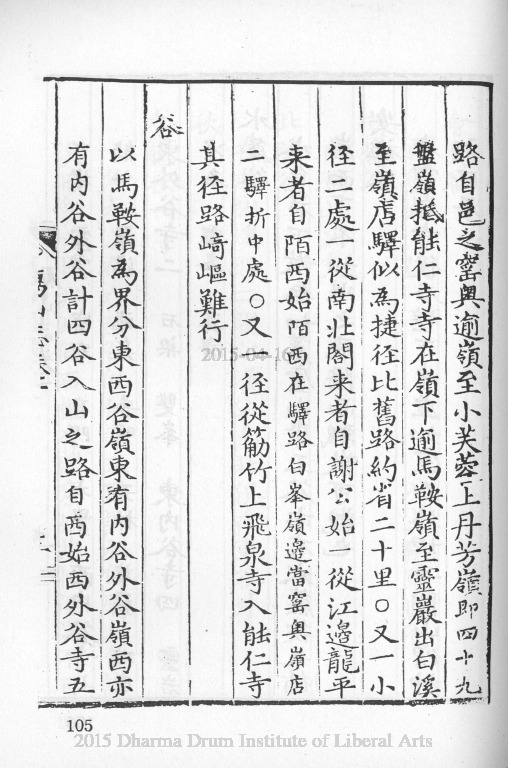 路自邑之窑奧逾嶺至小芙蓉上丹芳嶺即四十九
盤嶺抵能仁寺寺在嶺下逾馬鞍嶺至靈巖出白溪
至嶺店驛似為捷徑比舊路約省二十里○又一小
徑二處一從南北閣来者自謝公始一從江邊龍平
来者自陌西始陌西在驛路白峯嶺邊當窑奧嶺店
二驛折中處○又一徑從筋竹上飛泉寺入能仁寺
其徑路﨑嶇難行
谷
以馬鞍嶺為界分東西谷嶺東有内谷外谷嶺西亦
有内谷外谷計四谷入山之路自西始西外谷寺五
山志卷二
2015-04-16
105
2015 Dharma Drum Institute of Liberal Arts